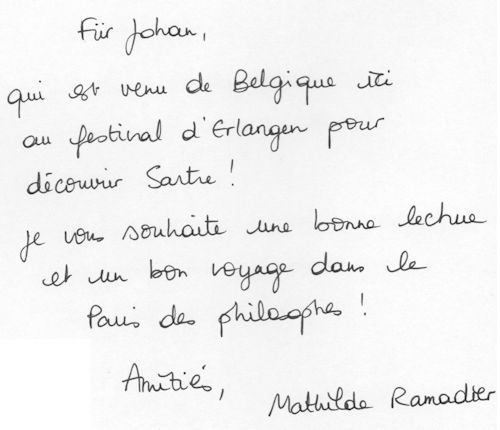 Für Johan,
qui est venu de Belgique ici
au festival d'Erlangen pour
découvrir Sartre !
Je vous souhaite une bonne lecture
et un bon voyage dans le
Paris des philosophes !
Amitiés,
Mathilde Ramadier